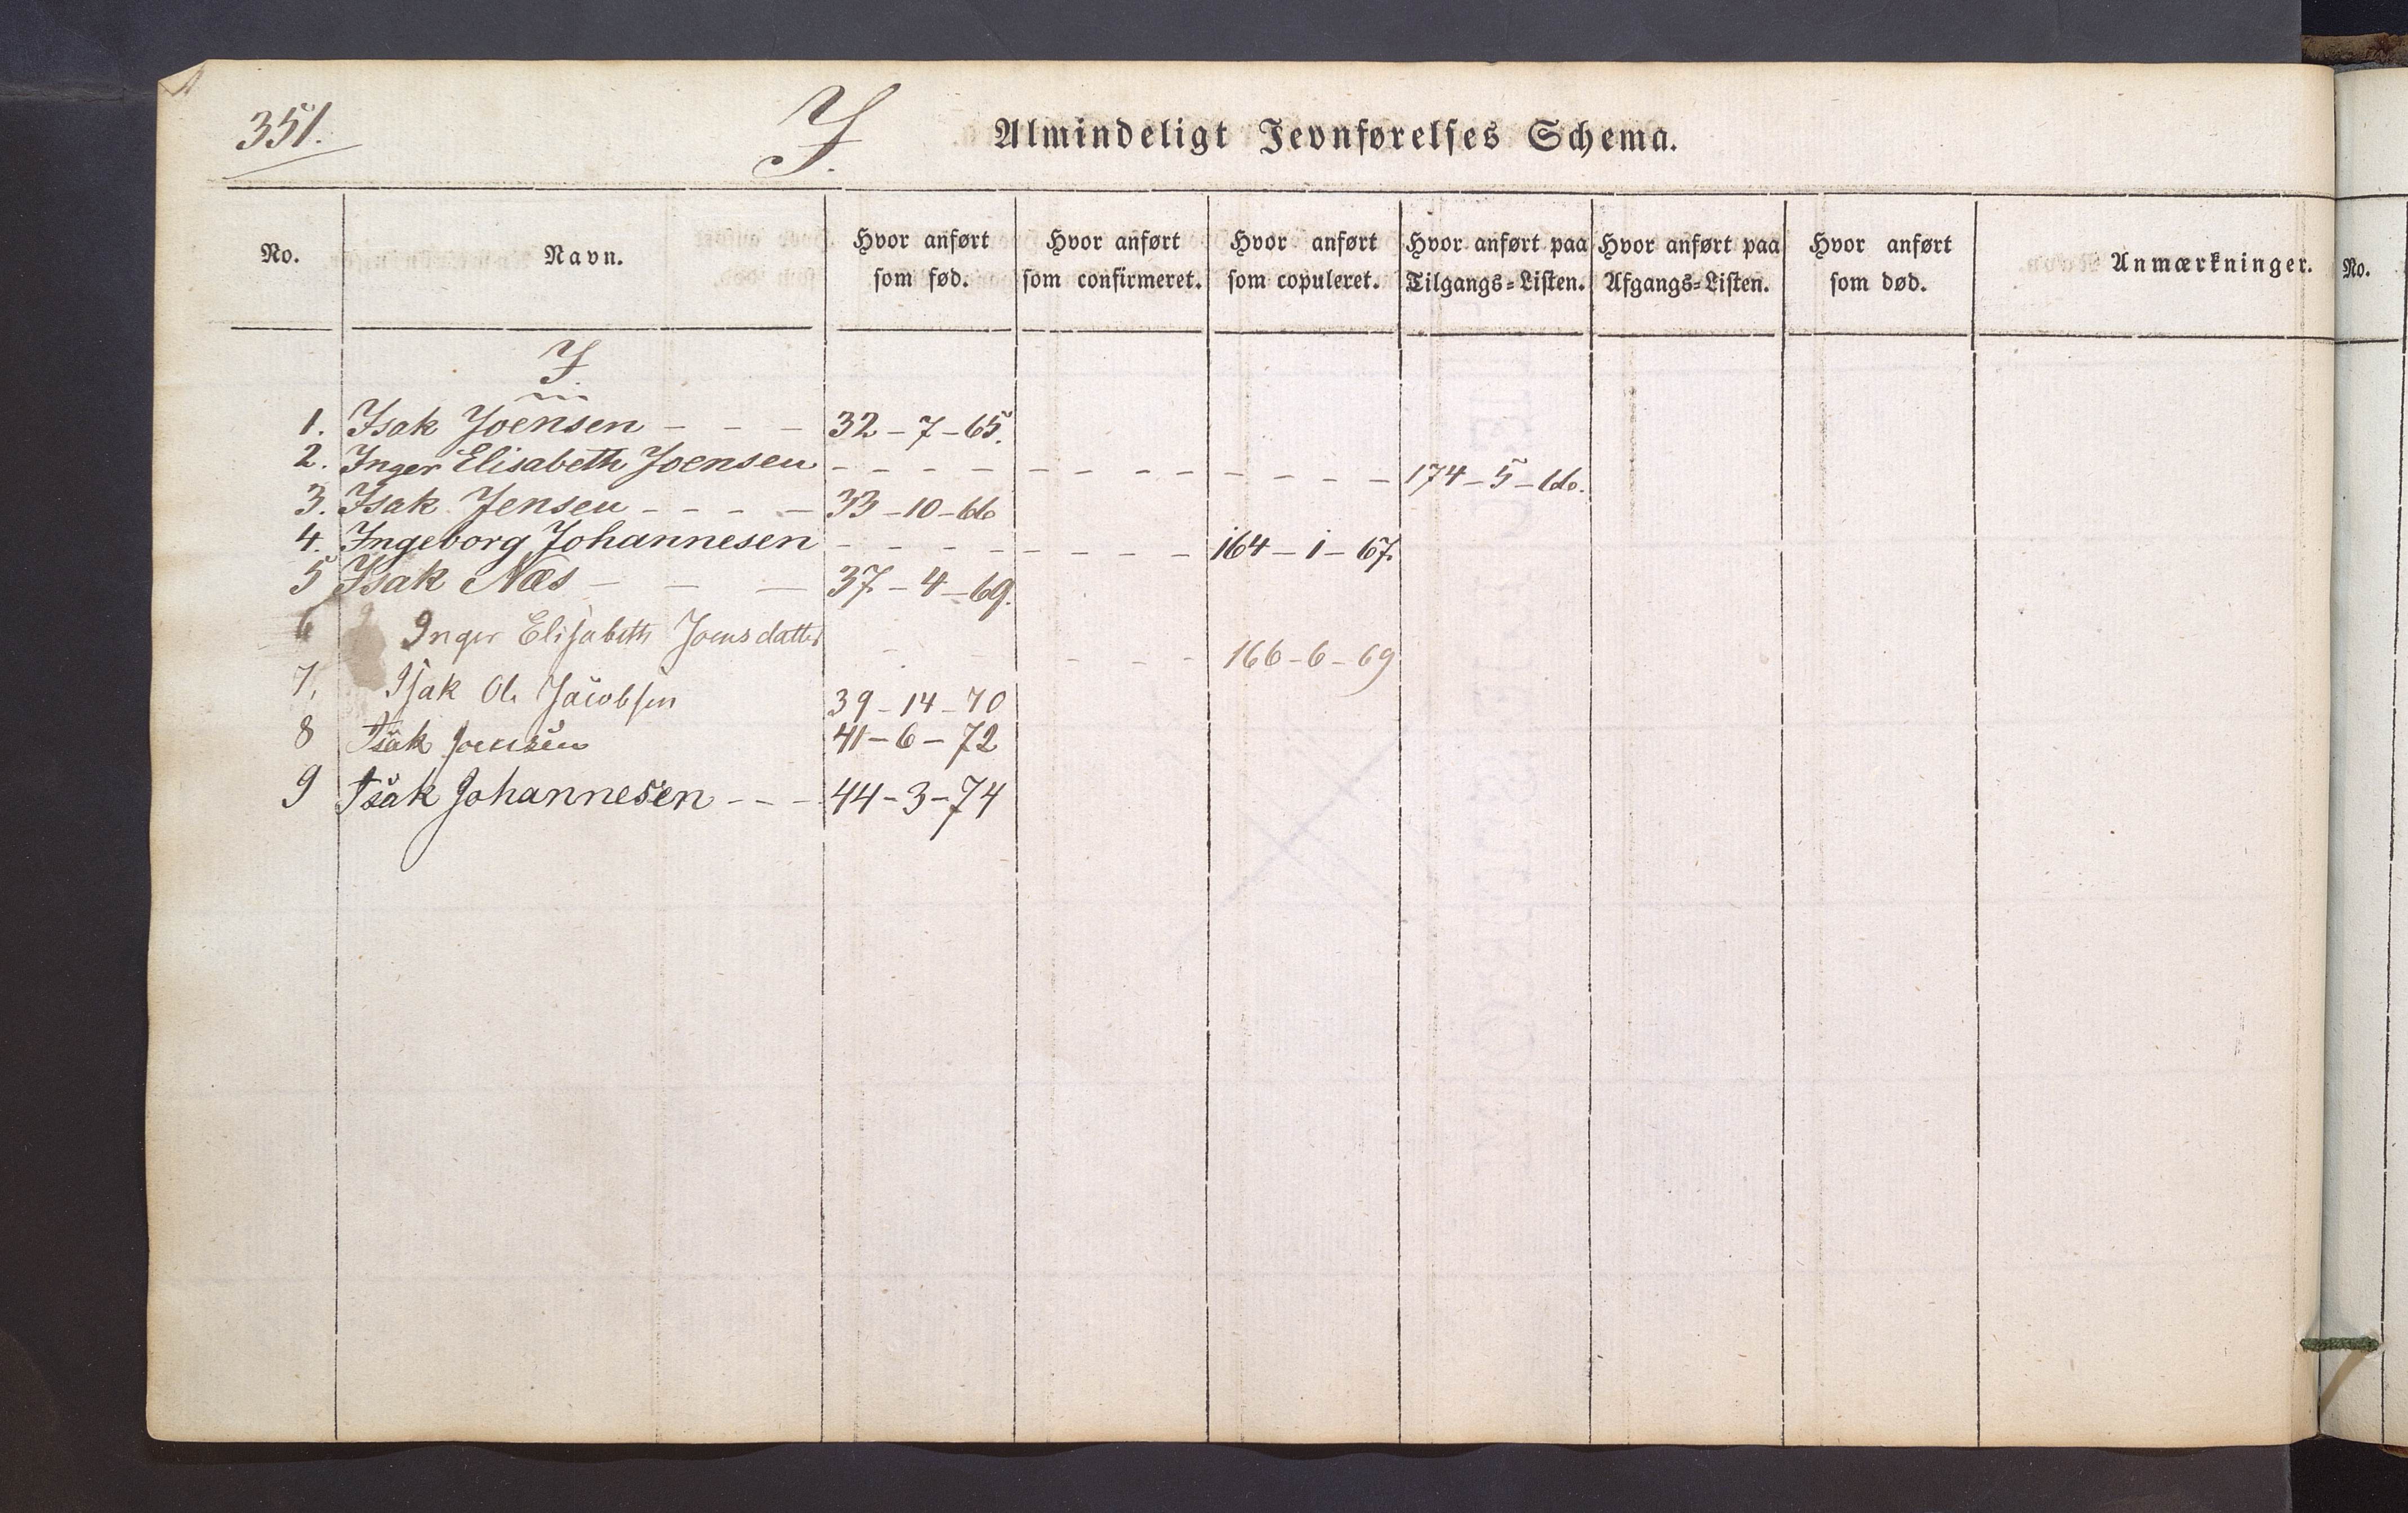 351.
I.
Almindeligt Jevnførelses Schema.
No. Navn. Hvor anført som fød. Hvor anført som confirmeret. Hvor anført som copuleret. Hvor anført paa Tilgangs-Listen. Hvor anført paa Afgangs-Listen. Hvor anført som død. Anmærkninger. No.
I.
1. Isak Joensen - - - 32-7-65.
2. Inger Elisabeth Joensen - - - - - - - - - - - - 174-5-66.
3. Isak Jensen - - - - 33-10-66
4. Ingeborg Johannesen - - - - - - - - 164-1-67.
5 Isak Næs - - - 37-4-69.
6 Inger Elisabeth Joensdatter - - - - 166-6-69
7. Isak Ole Jacobsen 39-14-70
8 Isak Joensen 41-6-72
9 Isak Johannesen - - - 44-3-74